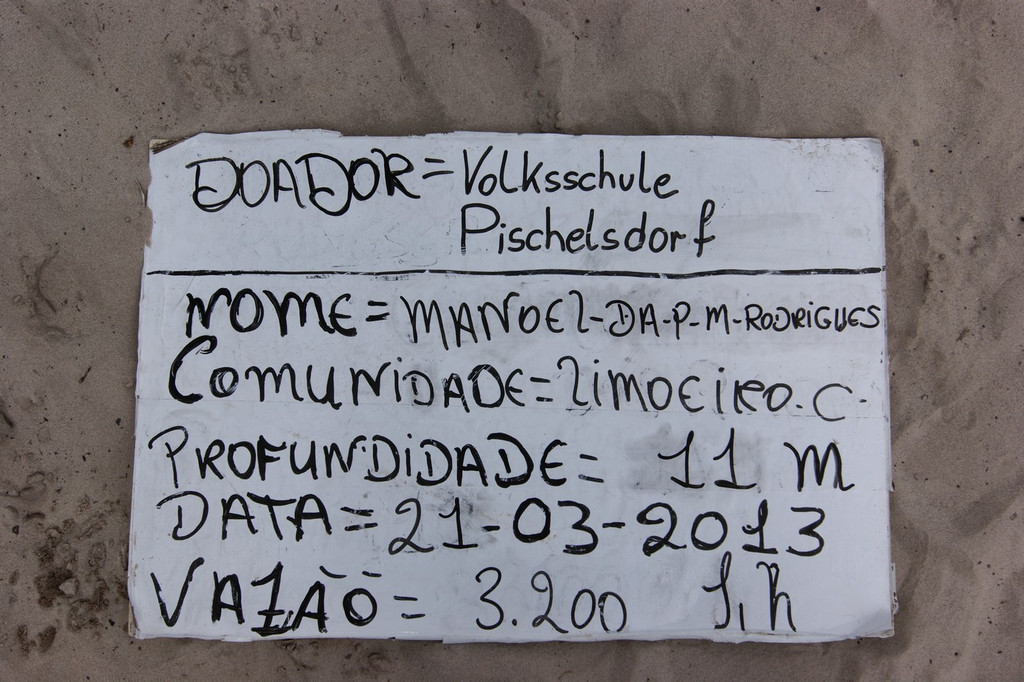 DOADOR = Volksschule
Pischelsdorf
NOME = MANOEL-DA-P-M-RODRIGUES
COMUNIDADE = LIMOEIRO. C.
PROFUNDIDADE = 11 M
DATA = 21-03-2013
VAZÃO = 3.200 L, h